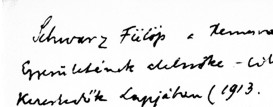 Schwarz Fülöp a Temesv
Egyesületének alelnöke -
Kereskedők Lapjában (1913.